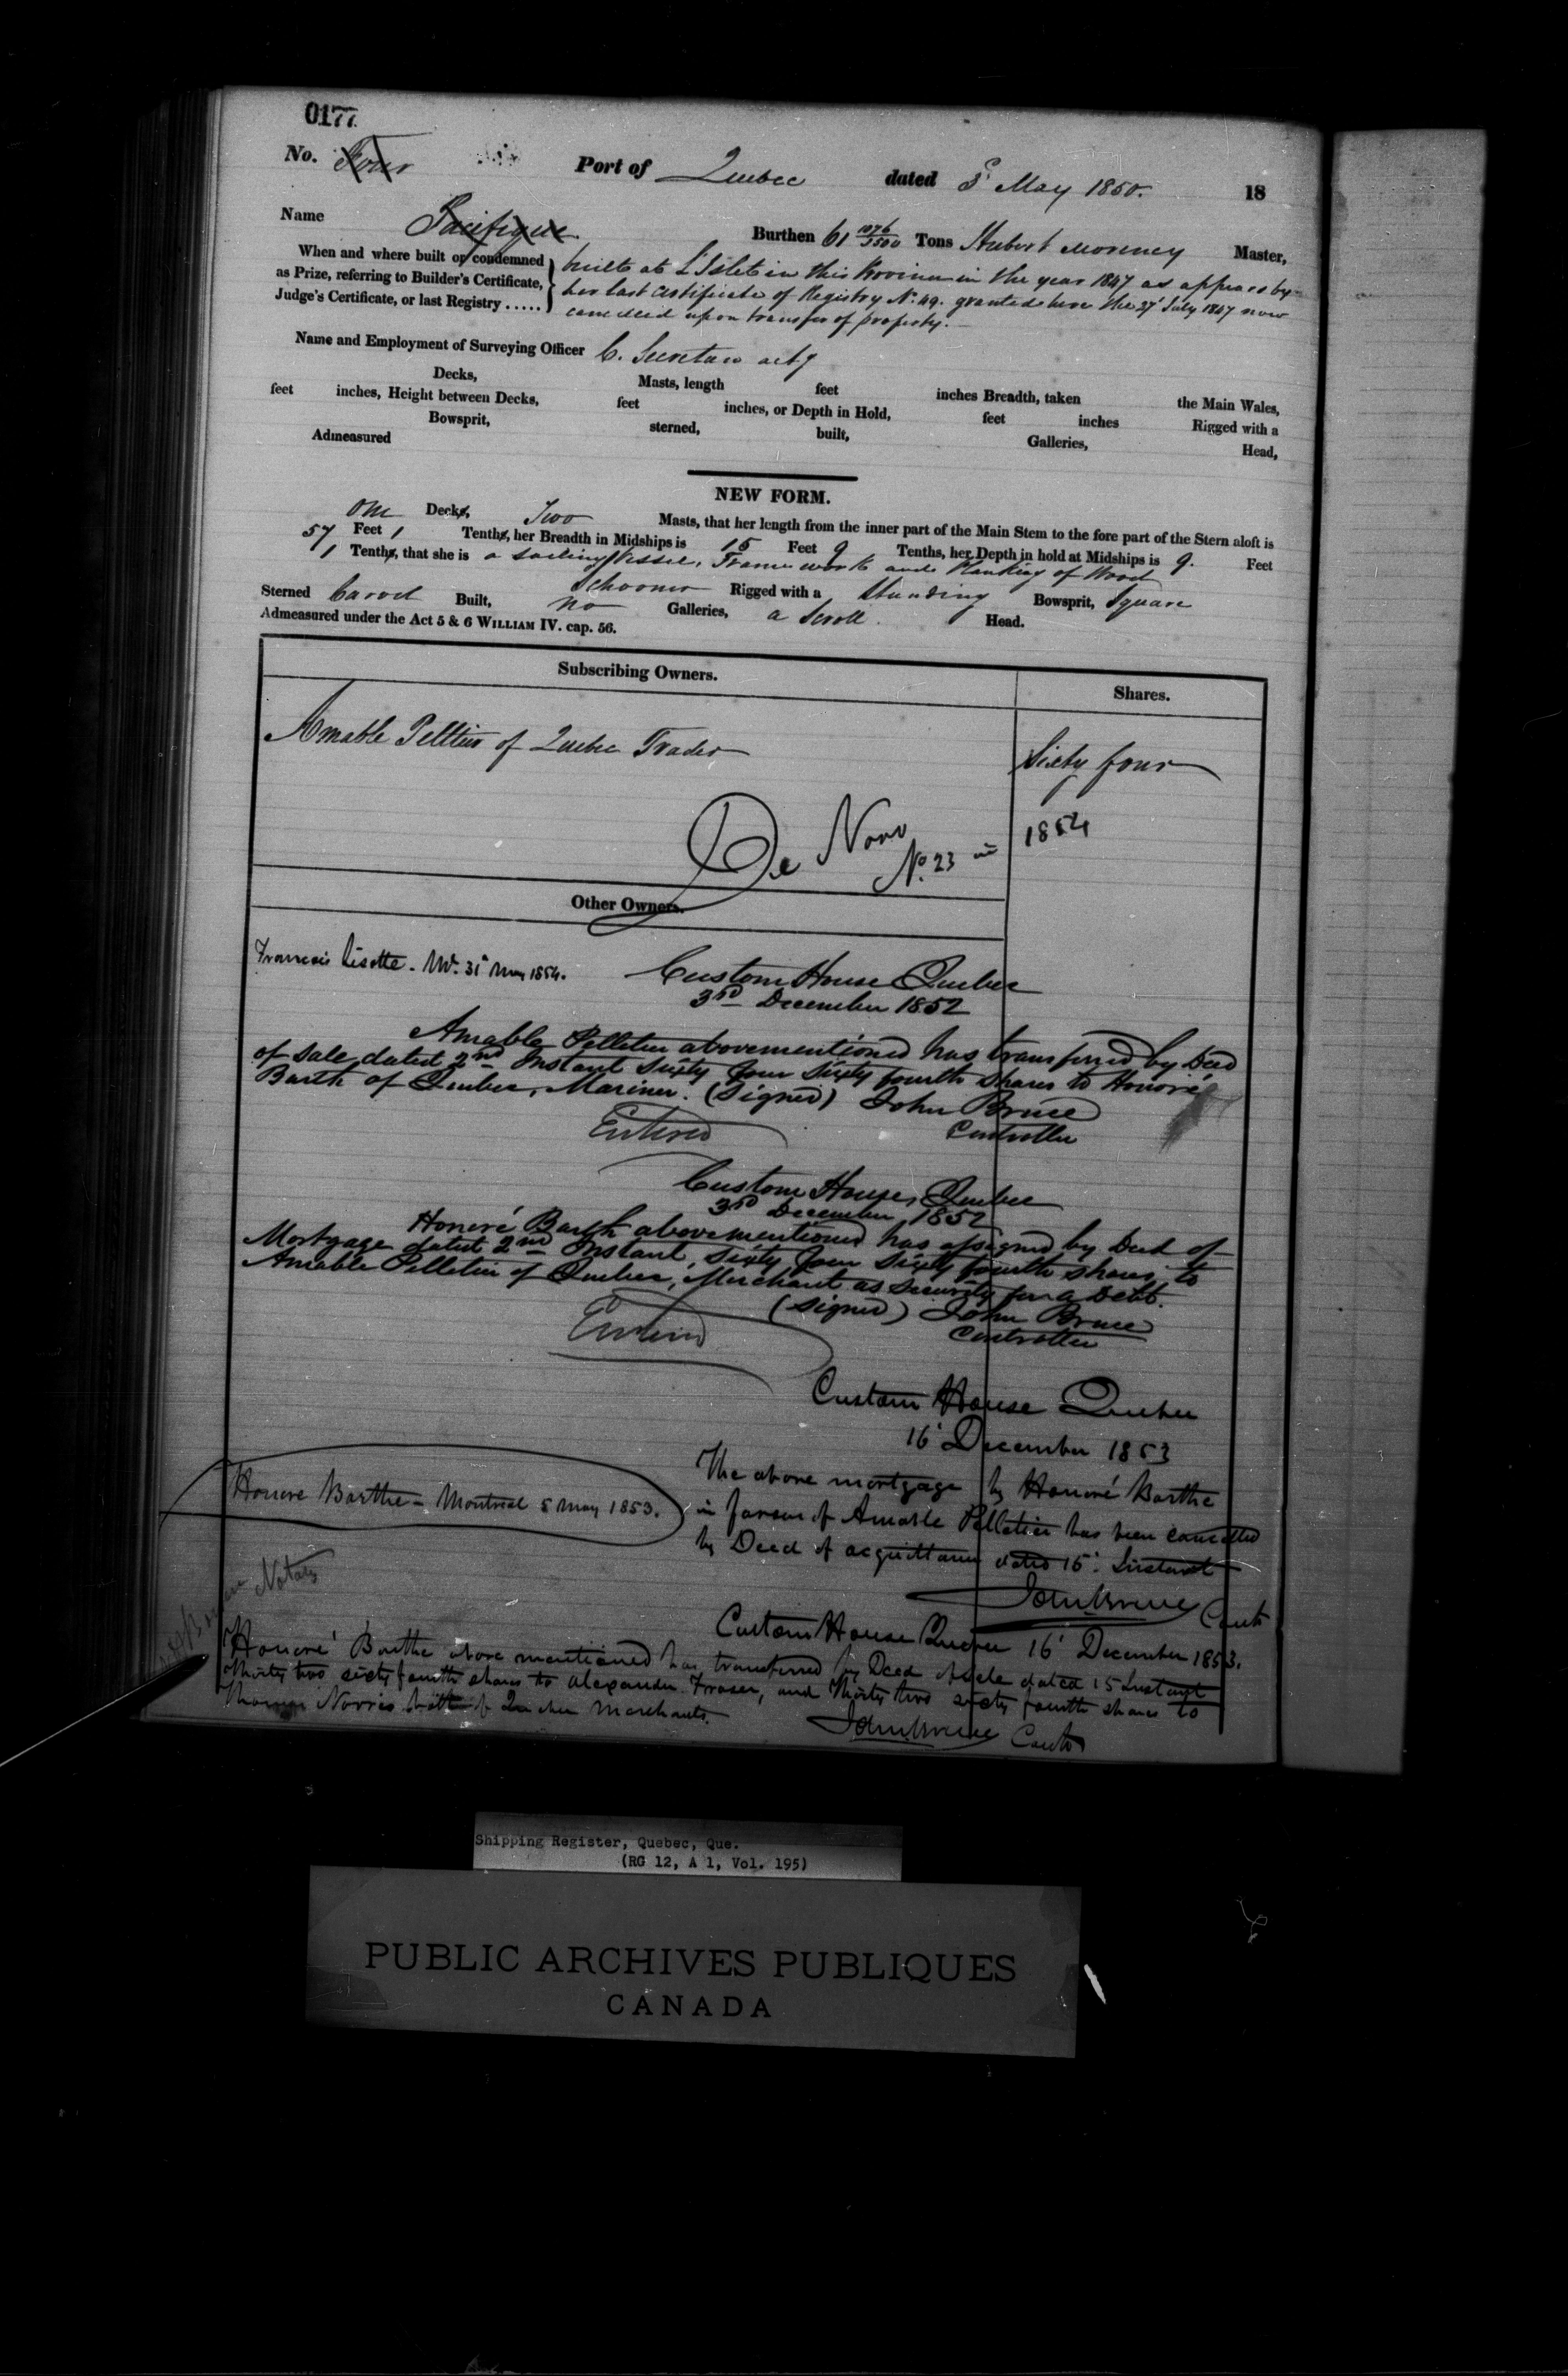 0177
No. Four Port of Quebec dated 8' May 1850. 18
Name Pacifique Burthen 61 1076/3500 Tons Hubert Morency Master,
When and where built or condemned
as Prize, referring to Builder's Certificate,
Judge's Certificate, or last Registry .....
built at L'Islet in this Province in the year 1847 as appears by
her last Certificate of Registry No. 49. granted here the 27' July 1847 now
cancelled upon transfer of property.
Name and Employment of Surveying Officer C. Secretan actg
Decks, Masts, length feet inches Breadth, taken the Main Wales,
feet inches, Height between Decks, feet inches, or Depth in Hold, feet inches Rigged with a
Bowsprit, sterned, built, Galleries, Head,
Admeasured
NEW FORM.
One Decks, Two Masts, that her length from the inner part of the Main Stem to the fore part of the Stern aloft is
57 Feet 1 Tenths, her Breadth in Midships is 15 Feet 9 Tenths, her Depth in hold at Midships is 9. Feet
1 Tenths, that she is a sailing Vessel, Frame work and Planking of Wood
Schooner Rigged with a Standing Bowsprit, Square
Sterned Carvel Built, no Galleries, a Scroll Head.
Admeasured under the Act 5 & 6 WILLIAM IV. cap. 56.
Subscribing Owners. Shares.
Amable Pelltier of Quebec Trader Sixty four
De Novo
No. 23 in 1854
Other Owners.
Francois Lisotte. 31' May 1854.
Custom House Quebec
3rd December 1852
Amable Pelletier abovementioned has transferred by Deed
of Sale dated 2nd Instant Sixty four Sixty fourth shares to Honoré
Barth of Quebec, Mariner. (Signed) John Bruce
Entered Controller
Custom House, Quebec
3rd December 1852
Honoré Barth abovementioned has assigned by Deed of
Mortgage dated 2nd Instant, Sixty four Sixty fourth shares to
Amable Pelletier of Quebec, Merchant as security for a Debt.
(Signed) John Bruce
Entered Controller
Custom House Quebec
16' December 1853
The above mortgage by Honoré Barthe
in favour of Amable Pelletier has been cancelled
by Deed of acquittance dated 15' Instant
John Bruce Contr
Honore Barthe - Montreal 5 May 1853.
Notary
Custom House Quebec 16' December 1853.
Honoré Barthe above mentioned has transferred by Deed of sale dated 15 Instant
Thirty two sixty fourth shares to Alexander Fraser, and Thirty two sixty fourth shares to
Thomas Norris both of Quebec Merchants.
John Bruce Contr
Shipping Register, Quebec, Que.
(RG 12, A 1, Vol. 195)
PUBLIC ARCHIVES PUBLIQUES
CANADA